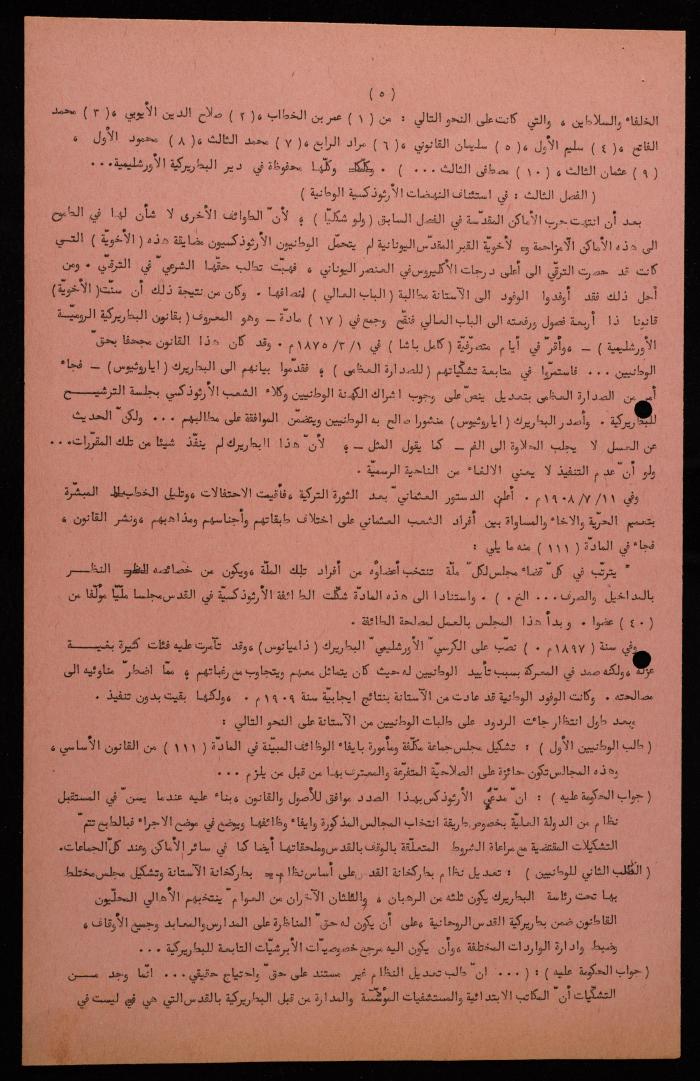 ( ٥ )
الخلفاء والسلاطين ، والتي كانت على النحو التالي : من ( ١ ) عمر بن الخطاب ،( ٢ ) صلاح الدين الأيوبي ،( ٣ ) محمد
الفاتح ،( ٤ ) سليم الأول ،( ٥ ) سليمان القانوني ،( ٦ ) مراد الرابع ،( ٧ ) محمد الثالث ،( ٨ ) محمود الأول ،
( ٩ ) عثمان الثالث ،( ١٠ ) مصطفى الثالث ... ) . وكلها محفوظة في دير البطريركية الأورشليمية...
( الفصل الثالث : في استئناف النهضات الأرثوذكسية الوطنية )
بعد أن انتهت حرب الأماكن المقدّسة في الفصل السابق ( ولو شكليّا ) ؛ لأنّ الطوائف الأخرى لا شأن لها في الطموح
الى هذه الأماكن الّا مزاحمة لأخويّة القبر المقدّس اليونانية لم يتحمّل الوطنيون الأرثوذكسيون مضايقة هذه ( الأخويّة ) التي
كانت قد حصرت الترقّي الى أعلى درجات الأكليروس في العنصر اليوناني ، فهبّت تطالب حقّها الشرعيّ في الترقّي . ومن
أجل ذلك فقد أوفدوا الوفود الى الآستانة مطالبة ( الباب العالي ) انصافها . وكان من نتيجة ذلك أن سنّت( الأخويّة)
قانونا ذا أربعة فصول ورفعته الى الباب العالي فنقّح وجمع في ( ١٧ ) مادّة ـ وهو المعروف( بقانون البطريركية الروميّة
الأورشليمية ) ـ ،وأقرّ في أيام متصرّفيّة ( كامل باشا ) في ١/ ٣/ ١٨٧٥م . وقد كان هذا القانون مجحفا بحقّ
الوطنيين ... فاستمرّوا في متابعة تشكّياتهم ( للصدارة العظمى ) ؛ فقدّموا بيانهم الى البطريرك ( اياروثيوس) ـ فجاء
أمر من الصدارة العظمى بتعديل ينصّ على وجوب اشراك الكهنة الوطنيين وكلاء الشعب الأرثوذكسي بجلسة الترشيح
للبطريركية . وأصدر البطريرك ( ايارو ثيوس) منشورا صالح به الوطنيين ويتضمّن الموافقة على مطالبهم ... ولكنّ الحديث
عن العسل لا يجلب الحلاوة الى الفم ـ كما يقول المثل ـ ؛ لأنّ هذا البطريرك لم ينفّذ شيئا من تلك المقرّرات...
ولو أنّ عدم التنفيذ لا يعني الالغاء من الناحية الرسميّة .
وفي ١١/ ٧/ ١٩٠٨م . أعلن الدستور العثمانيّ بعد الثورة التركية ،فأقيمت الاحتفالات ،وتليل الخطب المبشّرة
بتعميم الحرّية والاخاء والمساواة بين أفراد الشعب العثماني على اختلاف طبقاتهم وأجناسهم ومذاهبهم ،ونشر القانون ،
فجاء في المادّة ( ١١١ ) منه ما يلي :
" يترتّب في كلّ قضاء مجلس لكلّ ملّة تنتخب أعضاؤه من أفراد تلك الملّة ،ويكون من خصائصه النظر
بالمداخيل والصرف... الخ . ) . واستنادا الى هذه المادّة شكّلت الطائفة الأرثوذكسيّة في القدس مجلسا ملّيّا مؤلّفا من
( ٤٠ ) عضوا . وبدأ هذا المجلس بالعمل لمصلحة الطائفة .
وفي سنة ( ١٨٩٧م . ) نصّب على الكرسيّ الأورشليميّ البطريرك ( ذاميانوس) ،وقد تآمرت عليه فئات كثيرة بغية
عزله ،ولكنّه صمد في المعركة بسبب تأييد الوطنيين له حيث كان يتماثل معهم ويتجاوب مع رغباتهم ؛ ممّا اضطرّ مناوئيه الى
مصالحته . وكانت الوفود الوطنية قد عادت من الآستانة بنتائج ايجابيّة سنة ١٩٠٩م . ،ولكنها بقيت بدون تنفيذ .
وبعد طول انتظار جاءت الردود على طلبات الوطنيين من الآستانة على النحو التالي :
( طلب الوطنيين الأول ) : تشكيل مجلس جماعة مكلّفة ومأمورة بايفاء الوظائف المبيّنة في المادّة ( ١١١ ) من القانون الأساسي ،
وهذه المجالس تكون حائزة على الصلاحيّة المتفرّعة والمعترف بها من قبل من يلزم ...
( جواب الحكومة عليه ) : انّ مدّعى الأرثوذكس بهذا الصدد موافق للأصول والقانون ،بناء عليه عندما يسنّ في المستقبل
نظام من الدولة العليّة بخصوص طريقة انتخاب المجالس المذكورة وايفاء وظائفها ويوضع في موضع الاجراء فبالطبع تتمّ
التشكيلات المقتضية مع مراعاة الشروط المتعلّقة بالوقف بالقدس وملحقاتها أيضا كما في سائر الأماكن وعند كلّ الجماعات.
( الطلب الثاني للوطنيين ) : تعديل نظام بطاركخانة القدس على أساس نظام بطاركخانة الآستانة وتشكيل مجلس مختلط
بها تحت رئاسة البطريرك يكون ثلثه من الرهبان ، والثلثان الآخران من العوامّ ينتخبهم الأهالي المحلّيون
القاطنون ضمن بطريركية القدس الروحانية ،على أن يكون له حقّ المناظرة على المدارس والمعابد وجميع الأوقاف ،
وضبط وادارة الواردات المختلفة ،وأن يكون اليه مرجع خصوصيّات الأبرشيّات التابعة للبطريركية ...
( جواب الحكومة عليه ) : ( ... انّ طلب تعديل النظام غير مستند على حقّ واحتياج حقيقي... انّما وجد من
التشكّيات أنّ المكاتب الابتدائية والمستشفيات المؤسّسة والمدارة من قبل البطريركية بالقدس التي هي ليست في